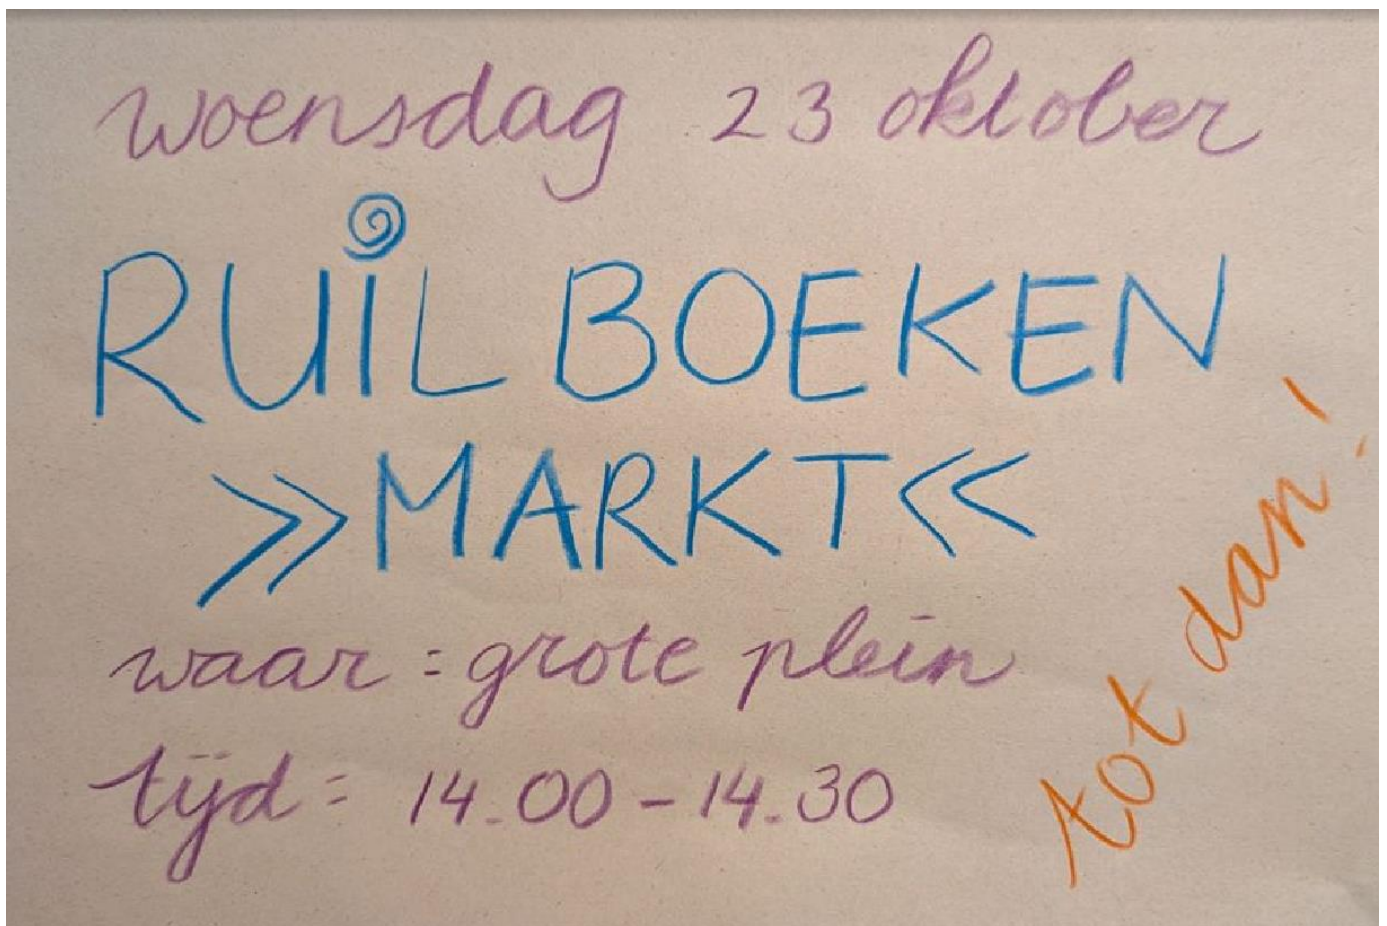 woensdag 23 oktober
RUIL BOEKEN
>> MARKT <<
waar = grote plein
tijd = 14.00 - 14.30
tot dan!